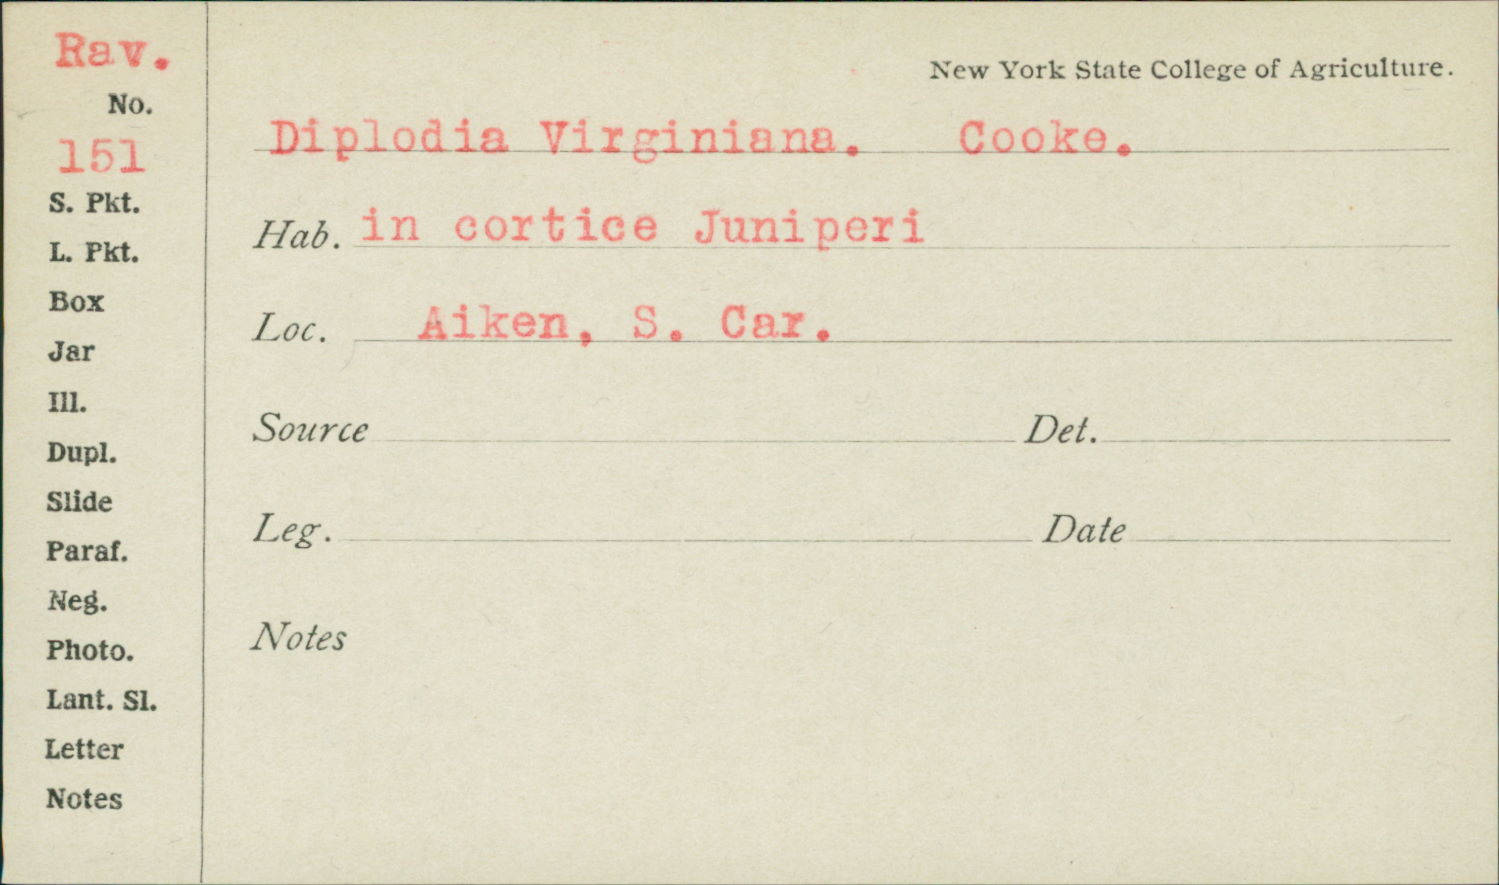 Rav.
No.
151
S. Pkt.
L. Pkt.
Box
Jar
Ill.
Dupl.
Slide
Paraf.
Neg.
Photo.
Lant. Sl.
Letter
Notes
New York State College of Agriculture.
Diplodia Virginiana. Cooke.
Hab. in cortice Juniperi
Loc. Aiken, S. Car.
Source Det.
Leg. Date
Notes